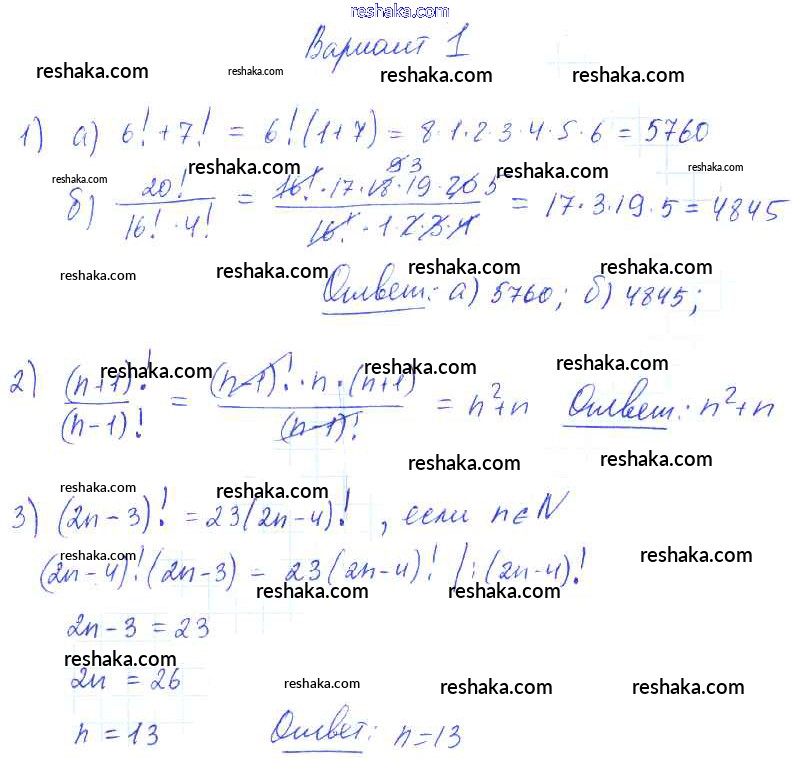 reshaka.com
Вариант 1
reshaka.com reshaka.com reshaka.com reshaka.com
1) а) 6! + 7! = 6!(1+7) = 8·1·2·3·4·5·6 = 5760
reshaka.com reshaka.com reshaka.com reshaka.com
б) 20! / 16!·4! = 16!·17·18·19·20 / 16!·1·2·3·4 = 17·3·19·5 = 4845
reshaka.com reshaka.com reshaka.com reshaka.com
Ответ: а) 5760; б) 4845;
reshaka.com reshaka.com reshaka.com reshaka.com
2) (n+1)! / (n-1)! = (n-1)!·n·(n+1) / (n-1)! = n²+n Ответ: n²+n
reshaka.com reshaka.com
reshaka.com reshaka.com
3) (2n-3)! = 23(2n-4)! , если n∈N
reshaka.com reshaka.com
(2n-4)!(2n-3) = 23(2n-4)! /:(2n-4)!
reshaka.com reshaka.com
2n-3 = 23
reshaka.com
2n = 26
reshaka.com reshaka.com reshaka.com
n = 13 Ответ: n=13